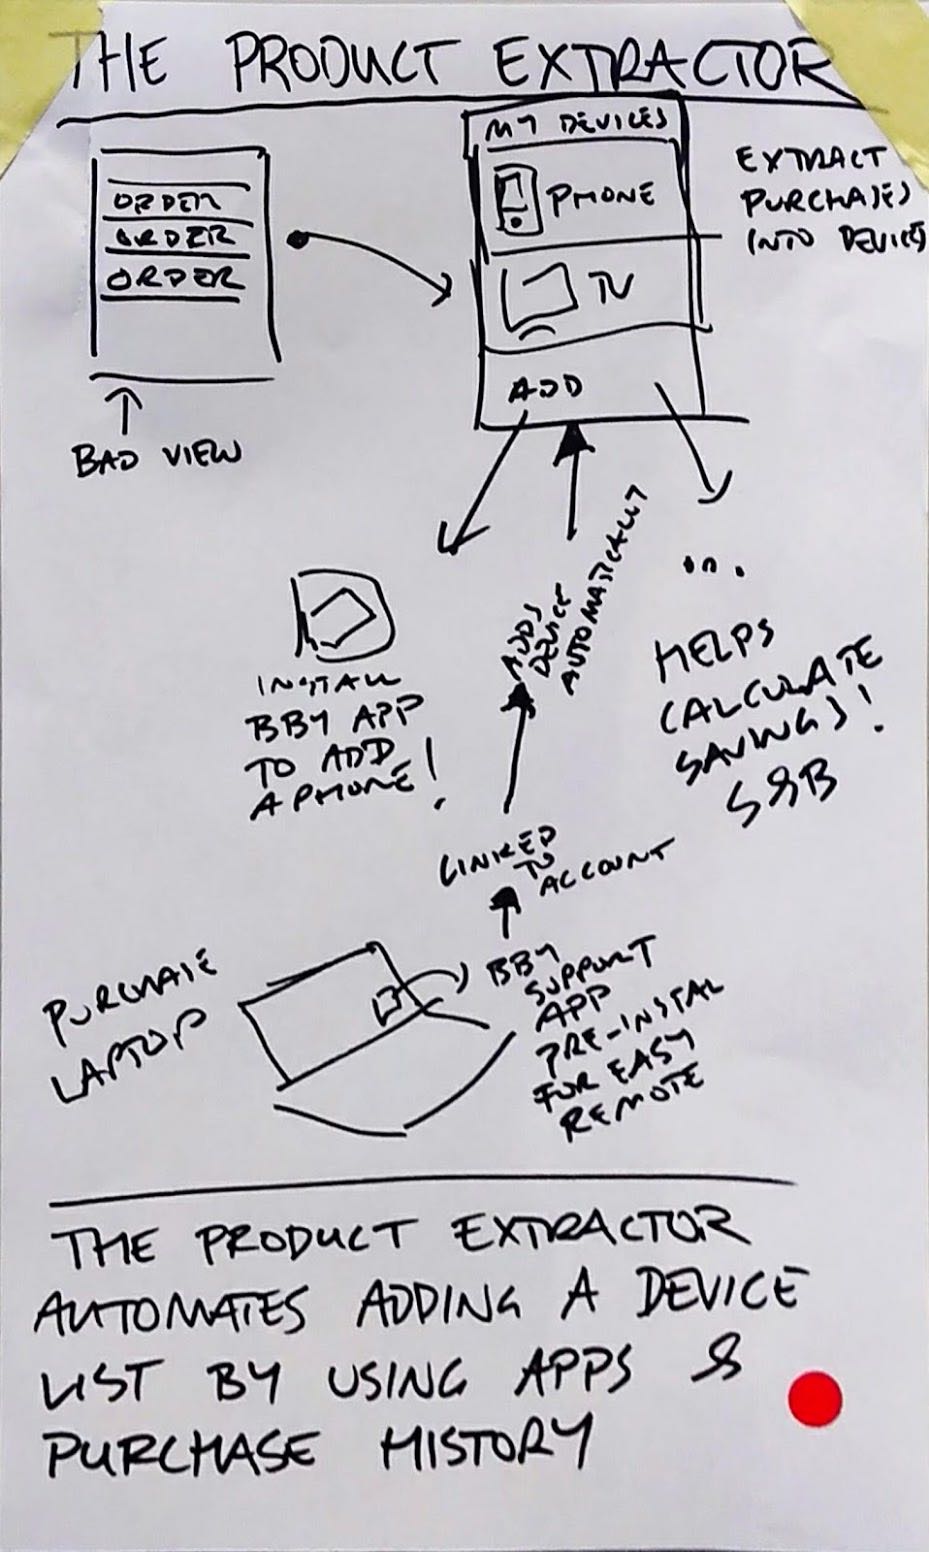 THE PRODUCT EXTRACTOR
MY DEVICES
PHONE
TV
ADD
EXTRACT
PURCHASES
INTO DEVICES
ORDER
ORDER
ORDER
BAD VIEW
INSTALL
BBY APP
TO ADD
A PHONE!
ADDS
DEVICE
AUTOMATICALLY
...
HELPS
CALCULATE
SAVINGS!
S&B
LINKED
TO
ACCOUNT
PURCHASE
LAPTOP
BBY
SUPPORT
APP
PRE-INSTAL
FOR EASY
REMOTE
THE PRODUCT EXTRACTOR
AUTOMATES ADDING A DEVICE
LIST BY USING APPS &
PURCHASE HISTORY